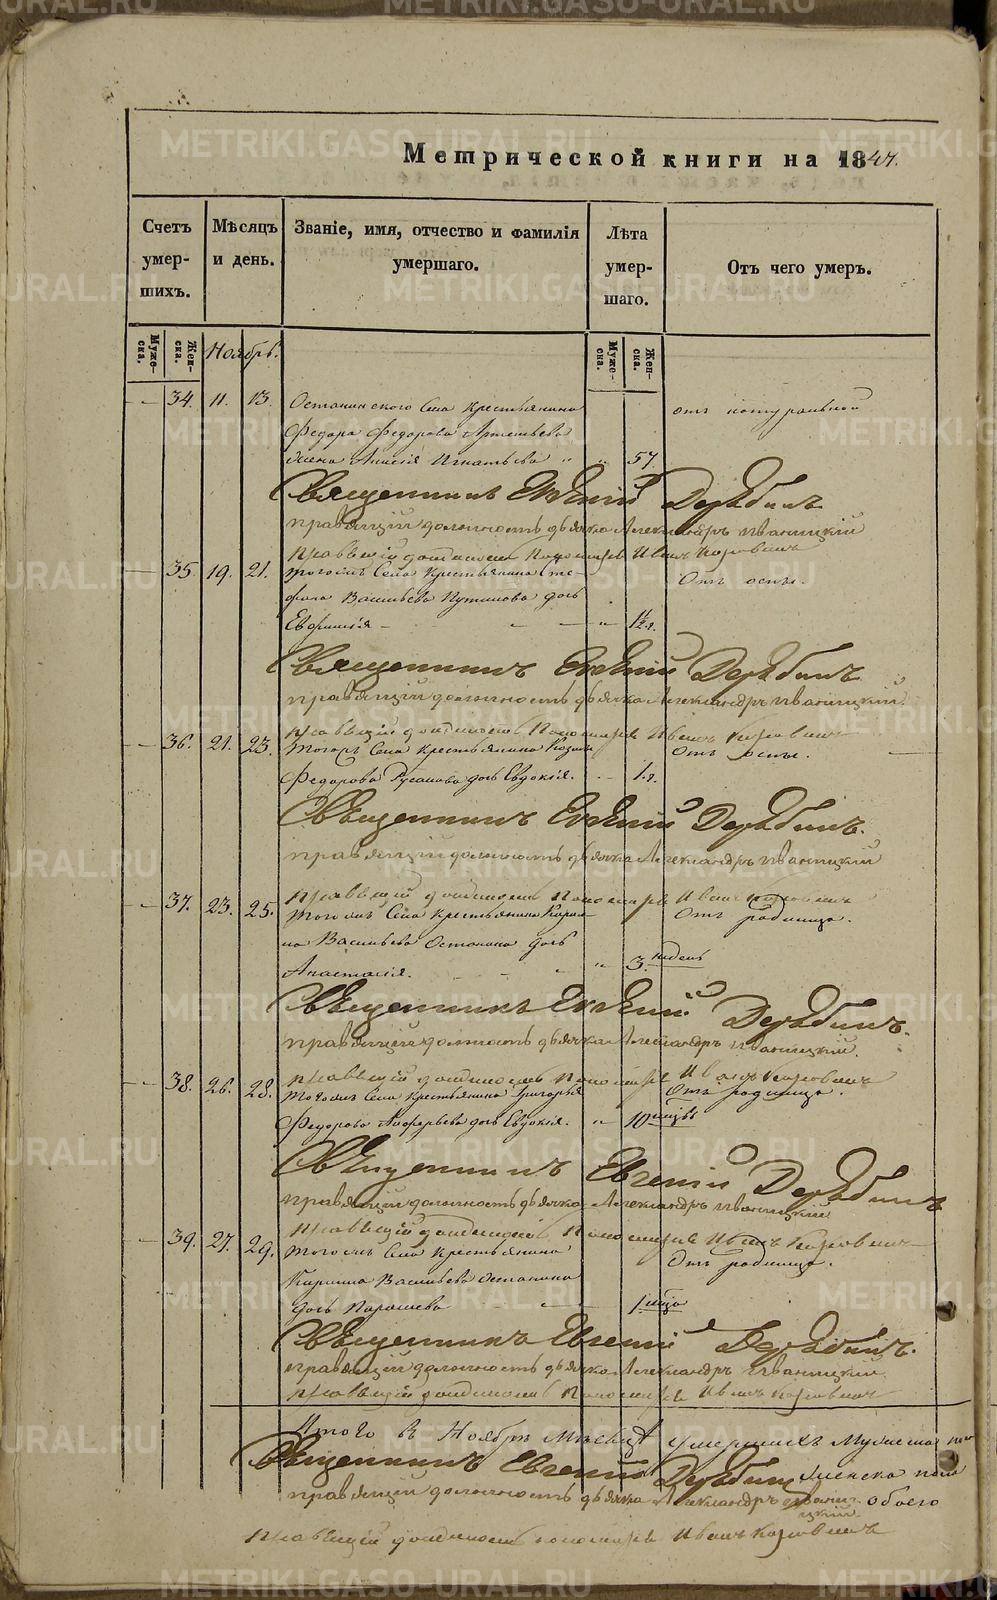 METRIKI.GASO-URAL.RU
Метрической книги на 1847.
Счетъ умер-шихъ.
Мѣсяцъ и день.
Званіе, имя, отчество и фамилія умершаго.
Лѣта умер-шаго.
Отъ чего умеръ.
Муже-ска.
Жен-ска.
Ноябрь.
Муже-ска.
Жен-ска.
34. 11. 13. Останинского Села Крестьянина
отъ натуральной
Федора Федорова Артемьева
жена Анисія Игнатьева 57.
Священникъ Евгений Дерябинъ
правящій должность дьячка Александръ Иваницкій
правящій должность Пономаря Иванъ
35. 19. 21. Тогожъ Села Крестьянина Сте-
Отъ оспы.
фана Васильева Путилова дочь
Евфимія 1½ г.
Священникъ Евгений Дерябинъ
правящій должность дьячка Александръ Иваницкій
правящій должность Пономаря Иванъ
36. 21. 23. Тогожъ Села Крестьянина Козмы
Отъ оспы.
Федорова Русакова дочь Евдокія. 1 г.
Священникъ Евгений Дерябинъ.
правящій должность дьячка Александръ Иваницкій
правящій должность Пономаря Иванъ
37. 23. 25. Тогожъ Села Крестьянина Кири-
Отъ родимца.
ла Васильева Останина дочь
Анастасія. 3 недели
Священникъ Евгений Дерябинъ.
правящій должность дьячка Александръ Иваницкій.
правящій должность Пономаря Иванъ
38. 26. 28. Тогожъ Села Крестьянина Григорья
Отъ родимца.
Федорова дочь Евдокія. 10
Священникъ Евгений Дерябинъ
правящій должность дьячка Александръ Иваницкій
правящій должность Пономаря Иванъ
39. 27. 29. Тогожъ Села Крестьянина
Отъ родимца.
Кирилла Васильева Останина
дочь Парасковья 1
Священникъ Евгений Дерябинъ.
правящій должность дьячка Александръ Иваницкій.
правящій должность Пономаря Иванъ
Итого въ Ноябрѣ Мѣсяцѣ умершихъ Мужеска пола
Женска пола
Священникъ Евгений Дерябинъ
обоего
правящій должность дьячка Александръ Иваницкій.
правящій должность пономаря Иванъ